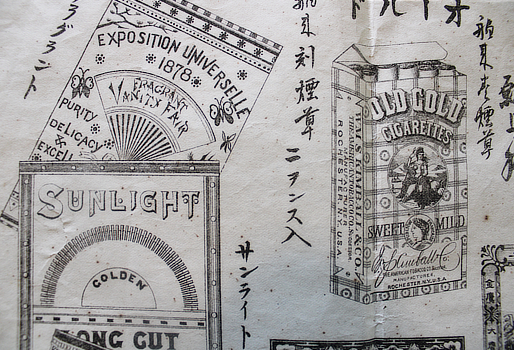 フラグラント
EXPOSITION UNIVERSELLE
1878
FRAGRANT
VANITY FAIR
PURITY
DELICACY
&
EXCELL
SUNLIGHT
GOLDEN
LONG CUT
サンライト
舶来刻煙草
二ヲンス入
オールド
OLD GOLD
CIGARETTES
SWEET
MILD
WM S. KIMBALL & CO.
ROCHESTER, N.Y. U.S.A.
Wm S Kimball & Co.
THE AMERICAN TOBACCO CO. SUCCESSOR
MANUFACTURERS
ROCHESTER, N.Y. U.S.A.
舶来巻煙草
大